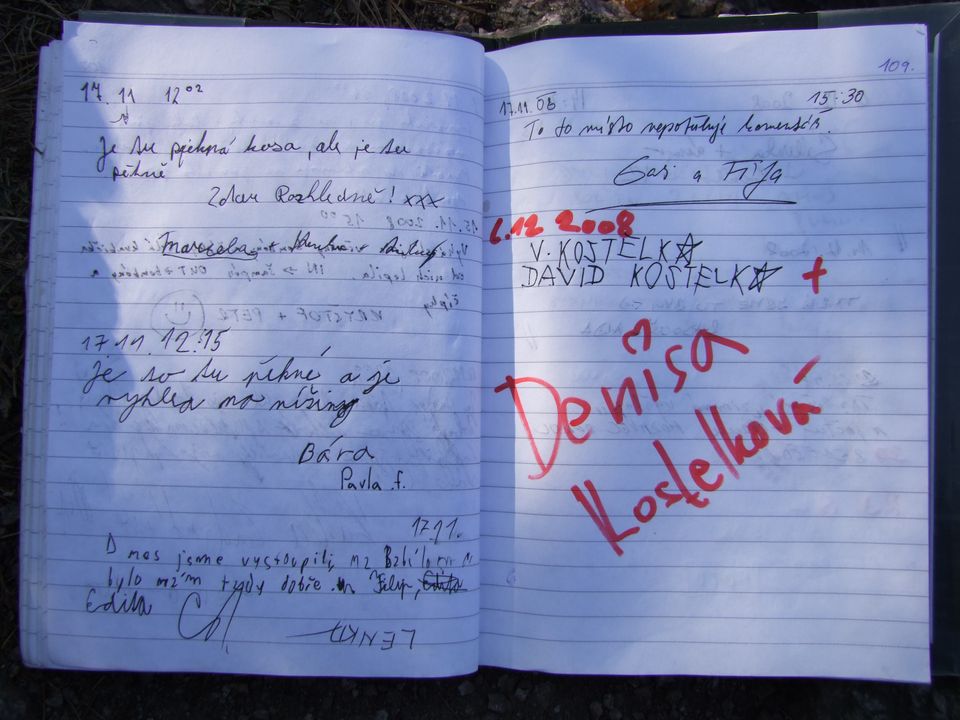 17. 11 12⁰²
Je tu pjekná kosa, ale je tu
pěkně
Zdar Rozhledně! xxx
17.11. 12:15
je to tu pěkné a je
vyhled na nížiny
Bára
Pavla .f.
17.11.
D nes jsme vystoupili na Babílon
bylo nám tady dobře. Filip, Edita
Edita
LENKA
109.
17.11.08 15:30
To to místo nepotřebuje komentář.
Gas a Fíja
6.12 2008
V. KOSTELKA
DAVID KOSTELKA +
Denisa
Kostelková